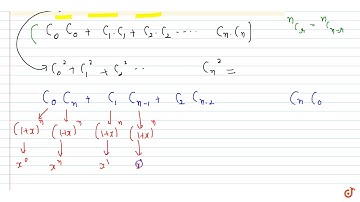 ( C₀ C₀ + C₁.C₁ + C₂.C₂ ..... Cₙ.Cₙ ] ⁿCᵣ = ⁿCₙ₋ᵣ
C₀² + C₁² + C₂² .. Cₙ² =
C₀ Cₙ + C₁ Cₙ₋₁ + C₂ Cₙ₋₂ Cₙ C₀
(1+x)ⁿ (1+x)ⁿ (1+x)ⁿ (1+x)ⁿ
x⁰ xⁿ x¹